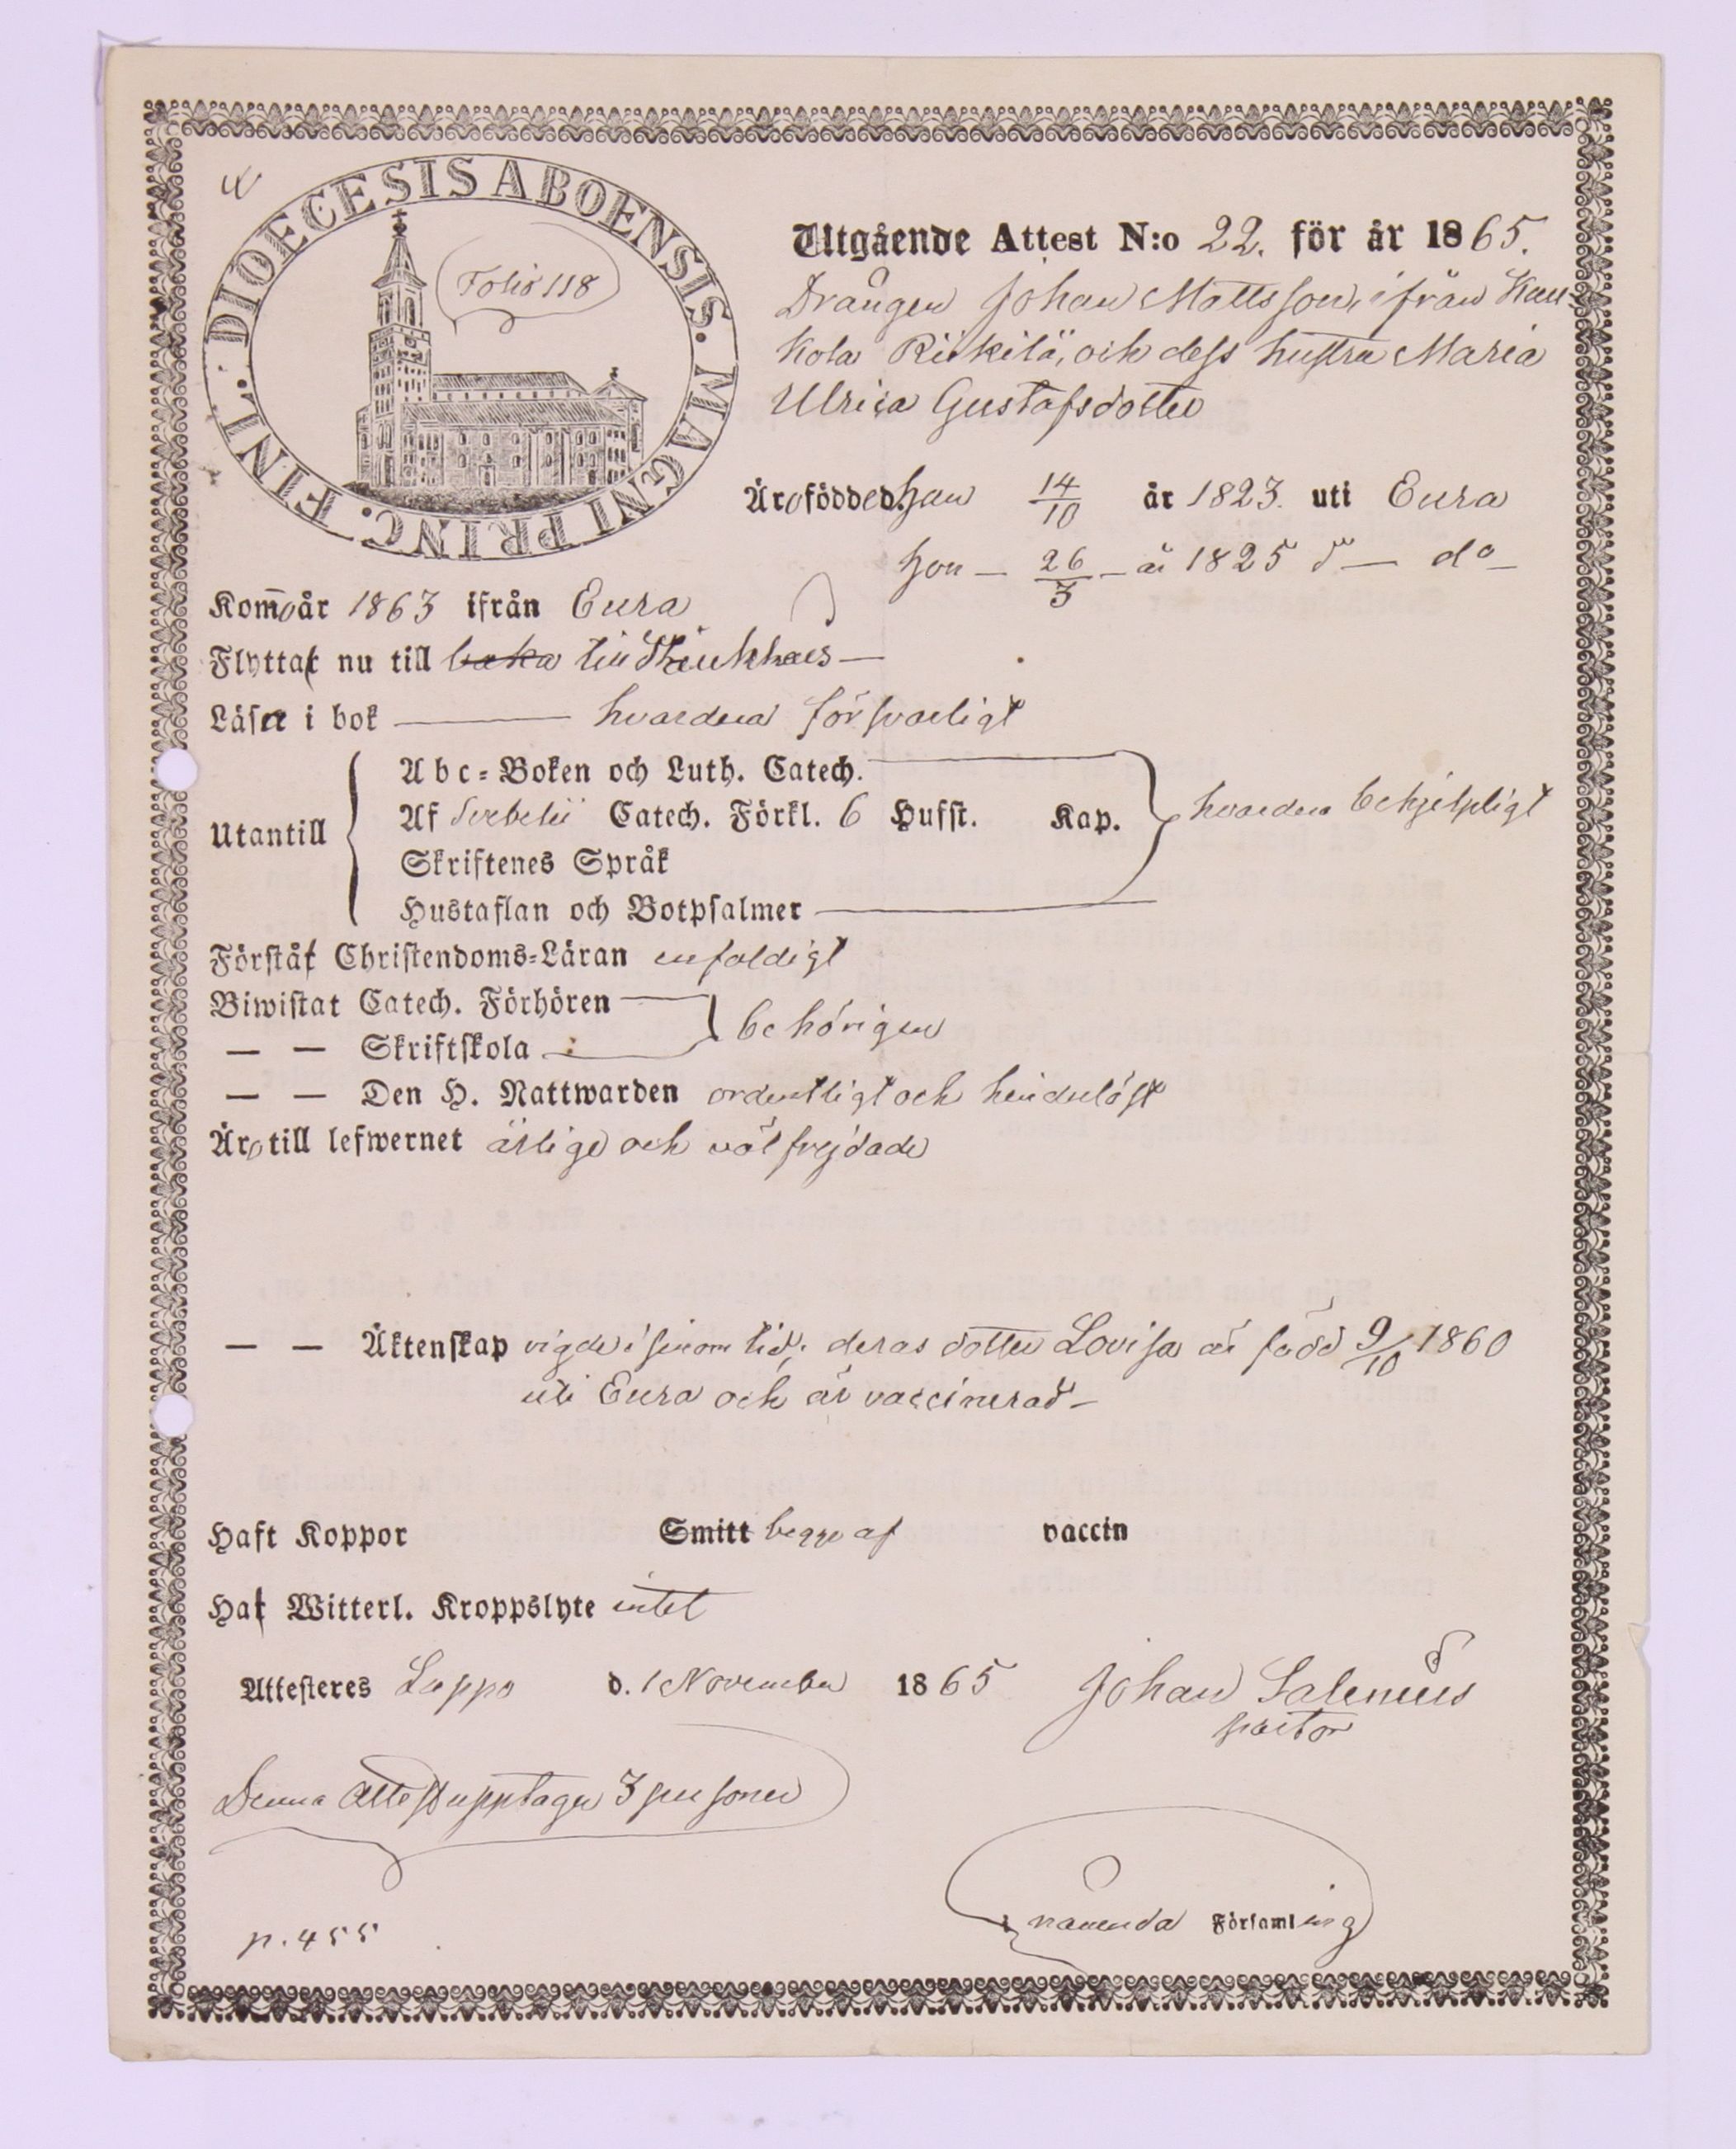 DIOECESIS ABOENSIS. MAGNI PRINC. FINL.
Folio 118
Utgående Attest N:o 22. för år 1865.
Drängen Johan Mattsson, ifrån Kau-
kola Riskilä, och dess hustru Maria
Ulrica Gustafsdotter
Äro födde d. han 14/10 år 1823. uti Eura
hon — 26/3 — år 1825 — do —
Kommo år 1863 ifrån Eura
Flytta nu till baka till Hinkhaus —
Läsa i bok — hvardera försvarligt
Utantill
Abc-Boken och Luth. Catech.
Af Svebelii Catech. Förkl. 6 Hufst. Kap.
hvardera behjelpligt
Skriftenes Språk
Hustaflan och Botpsalmer
Förstå Christendoms-Läran enfaldigt
Biwistat Catech. Förhören
behörigen
— — Skriftskola
— — Den H. Nattwarden ordentligt och hinderlöst
Äro till lefwernet ärlige och väl frejdade
— — Äktenskap vigde i sinom tid; deras dotter Lovisa är född 9/10 1860
uti Eura och är vaccinerad —
Haft Koppor Smitt begge af vaccin
Ha Witterl. Kroppslyte intet
Attesteres Lappo d. 1 November 1865 Johan Salenius
pastor
Denna Attest upptager 3 personer
i nämnda Församling
p. 455